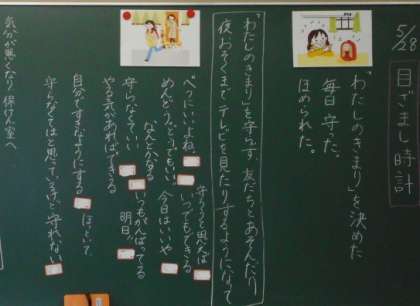 5/28
目ざまし時計
「わたしのきまり」を決めた
毎日守った。
ほめられた。
「わたしのきまり」を守らず、友だちとあそんだり、
夜おそくまでテレビを見たりするようになって
べつにいいよね。
めんどう。どうでもいい。
なんとかなる
守らなくていい
やる気があればできる
自分できめたようにする
守らなくはと思っているけど、守れない
守ろうと思えば
いつでもできる
今日はいいや
明日
いつもがんばってる
ほっといて
気分が悪くなり保けん室へ